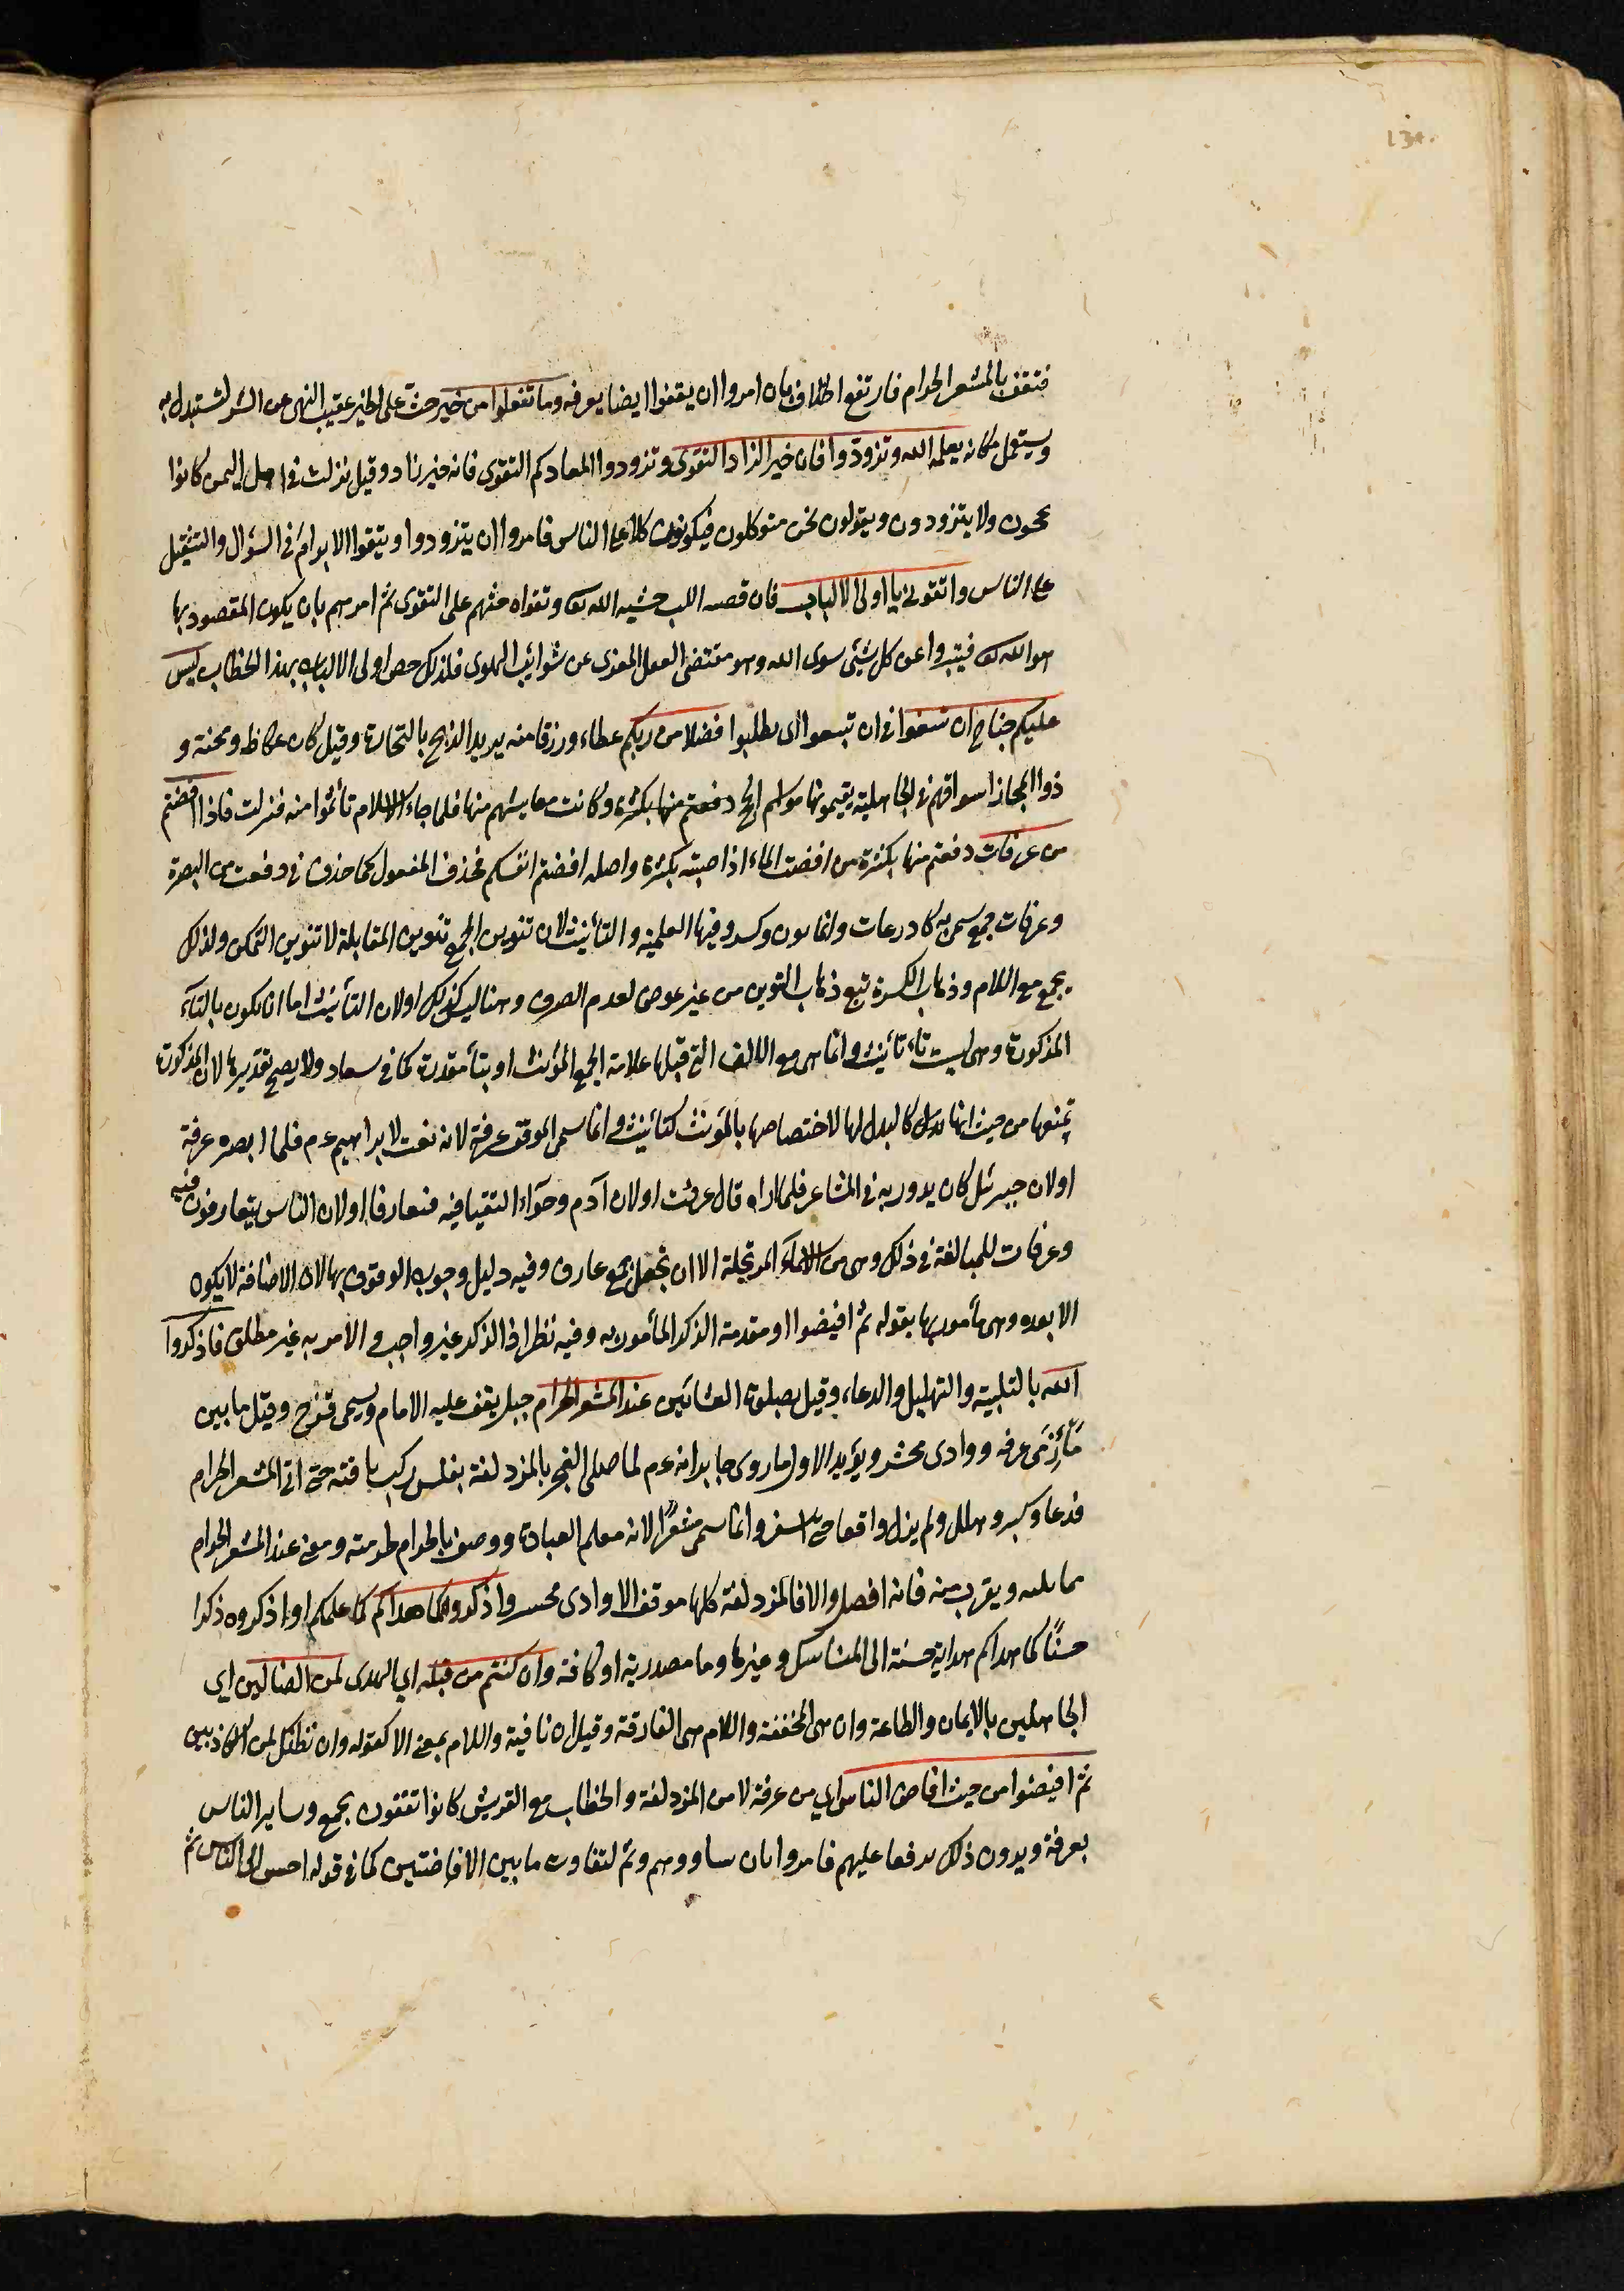 130.
فتقف بالمشعر الحرام فارتفع الخلاف بان امروا ان يقفوا ايضا بعرفه وما تفعلوا من خير حث على الخير عقيب النهى عن الشر لتستبدل به
ويستعمل مكانه يعلمه الله وتزودوا فان خير الزاد التقوى وتزودوا لمعادكم التقوى فانه خير زاد وقيل نزلت فى اهل اليمن كانوا
يحجون ولا يتزودون ويقولون نحن متوكلون فيكونون كلا على الناس فامروا ان يتزودوا ويتقوا الابرام فى السؤال والتثقيل
على الناس واتقون يا اولى الالباب فان قصه اللب خشيه الله تع وتقواه حثهم على التقوى ثم امرهم بان يكون المقصود بها
هو الله تع فيتبروا عن كل شئى سوى الله وهو مقتضى العقل المعرى عن شوائب الهوى فلذلك خص اولى الالباب بهذا الخطاب ليس
عليكم جناح ان تبتغوا فى ان تبتغوا اى تطلبوا فضلا من ربكم عطاء ورزقا منه يريد الربح بالتجارة وقيل كان عكاظ ومجنة و
ذو المجاز اسواقهم فى الجاهلية يقيمونها مواسم الحج دفعتم منها بكثرة وكانت معايشهم منها فلما جاء الاسلام تأثموا منه فنزلت فاذا افضتم
من عرفات دفعتم منها بكثرة من افضت الماء اذا صببته بكثرة واصله افضتم انفسكم فحذف المفعول كما حذف فى دفعت من البصرة
وعرفات جمع سمى به كاذرعات وانما نون وكسر وفيها العلمية والتأنيث لان تنوين الجمع تنوين المقابلة لا تنوين التمكن ولذلك
يجمع مع اللام وذهاب الكسرة تبع ذهاب التنوين من غير عوض لعدم الصرف وهنا ليس كذلك اولان التأنيث اما ان يكون بالتاء
المذكورة وهى ليست تاء تأنيث وانما هى مع الالف التى قبلها علامة الجمع المؤنث او بتأ مقدرة كما فى سعاد ولا يصح تقديرها لان المذكورة
تمنعها من حيث انها بدل كالبدل لها لاختصاصها بالمؤنث كتأنيث وانما سمى الموقف عرفة لانه نعت لابراهيم عم فلما ابصره عرفة
اولان جبرئل كان يدور به فى المشاعر فلما اراه قال عرفت اولان آدم وحوآء التقيا فيه فتعارفا اولان الناس يتعارفون فيه
وعرفات للمبالغة فى ذلك وهى من الاسماء المرتجلة الا ان تجعل جمع عارف وفيه دليل وجوب الوقوف بها لان الافاضة لا يكون
الا بعده وهى مأمور بها بقوله ثم افيضوا او مقدمة الذكر المأمور به وفيه نظر اذ الذكر غير واجب والامر به غير مطلق فاذكروا
الله بالتلبية والتهليل والدعاء وقيل بصلوة العشائين عند المشعر الحرام جبل يقف عليه الامام ويسمى قزح وقيل ما بين
مأزمى عرفه ووادى محشر ويؤيد الاول ما روى جابر انه عم لما صلى الفجر بالمزدلفة بغلس ركب ناقته حتى اتى المشعر الحرام
فدعا وكبر وهلل ولم يزل واقفا حتى اسفر وانما سمى مشعرا لانه معلم العبادة ووصف بالحرام لحرمته ومعنى عند المشعر الحرام
مما يليه ويقرب منه فانه افضل والا فالمزدلفة كلها موقف الا وادى محسر واذكروه كما هداكم كما علمكم او اذكروه ذكرا
حسنًا كما هداكم هداية حسنة الى المناسك وغيرها وما مصدرية او كافة وان كنتم من قبله اي الهدى لمن الضالين اى
الجاهلين بالايمان والطاعة وان هى المخففة واللام هى الفارقة وقيل ان نافية واللام بمعنى الا كقوله وان نظنك لمن الكاذبين
ثم افيضوا من حيث افاض الناس اي من عرفة لا من المزدلفة والخطاب مع القريش كانوا تقفون بجمع وساير الناس
بعرفة ويرون ذلك ترفعا عليهم فامروا بان يساووهم وثم لتفاوت ما بين الافاضتين كما فى قوله احسن الى الناس ثم